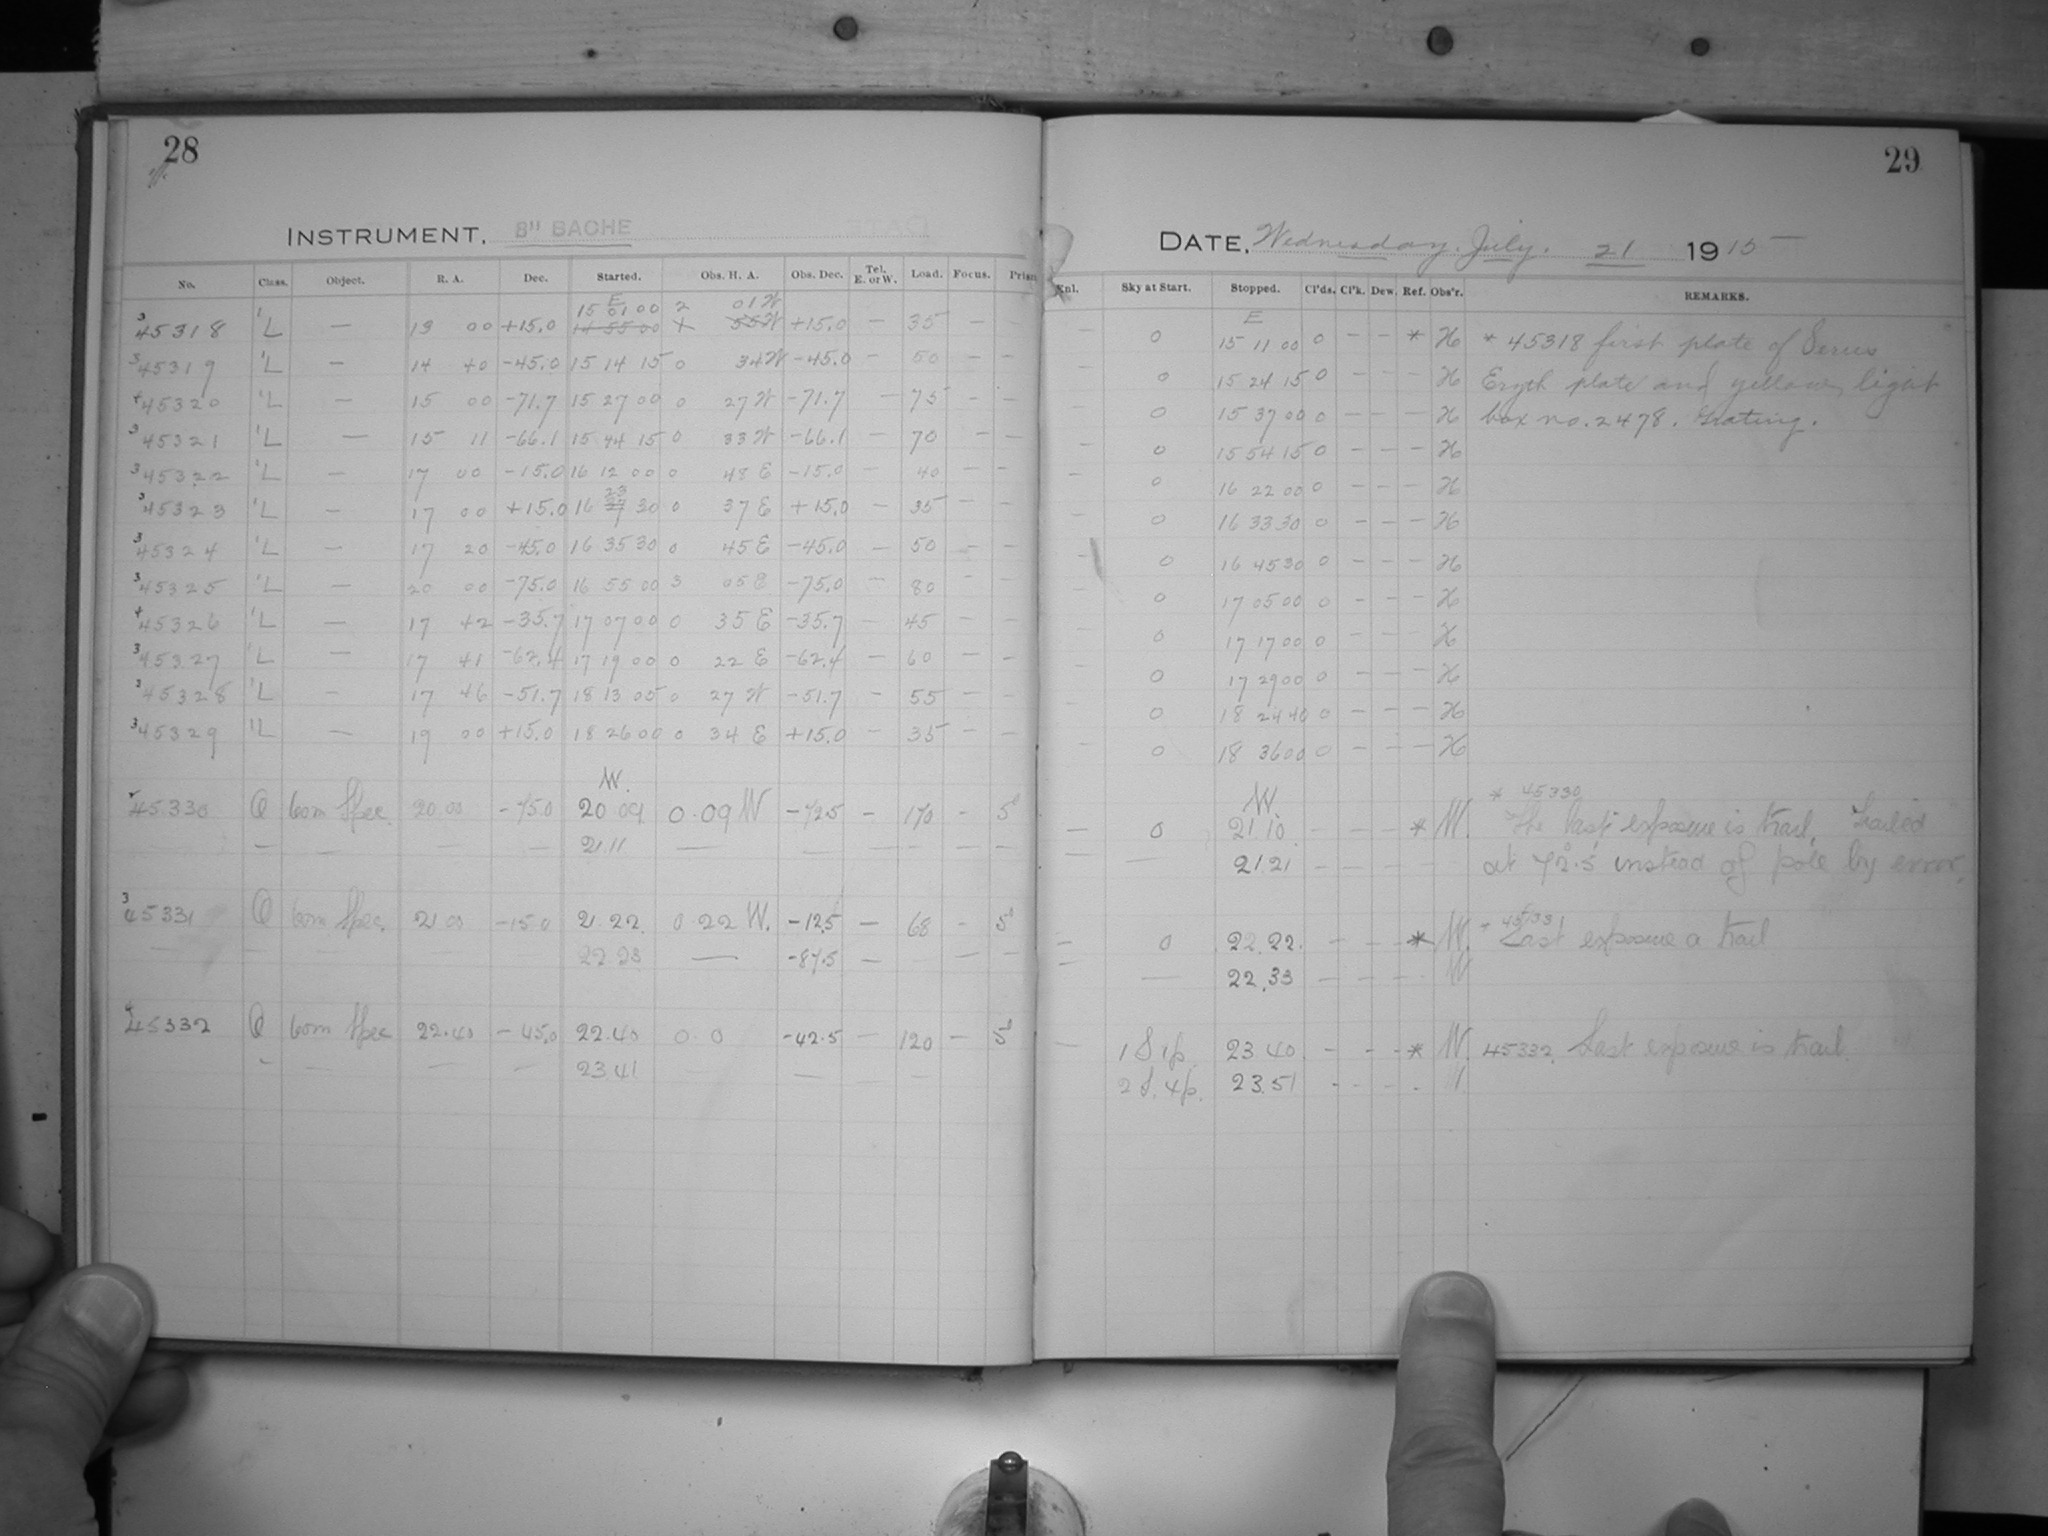 28
INSTRUMENT, 8" BACHE
No. Class. Object. R. A. Dec. Started. Obs. H. A. Obs. Dec. Tel. E. or W. Load. Focus. Prism
E
15 01 00 2 01 W
3 45318 'L — 13 00 +15.0 14 55 00 1 55 W +15.0 — 35 — —
3 45319 'L — 14 40 -45.0 15 14 15 0 34 W -45.0 — 50 — —
4 45320 'L — 15 00 -71.7 15 27 00 0 27 W -71.7 — 75 — —
3 45321 'L — 15 11 -66.1 15 44 15 0 33 W -66.1 — 70 — —
3 45322 'L — 17 00 -15.0 16 12 00 0 48 E -15.0 — 40 — —
23
3 45323 'L — 17 00 +15.0 16 27 30 0 37 E +15.0 — 35 — —
3 45324 'L — 17 20 -45.0 16 35 30 0 45 E -45.0 — 50 — —
3 45325 'L — 20 00 -75.0 16 55 00 3 05 E -75.0 — 80 — —
4 45326 'L — 17 42 -35.7 17 07 00 0 35 E -35.7 — 45 — —
3 45327 'L — 17 41 -62.4 17 19 00 0 22 E -62.4 — 60 — —
2 45328 'L — 17 46 -51.7 18 13 05 0 27 W -51.7 — 55 — —
3 45329 'L — 19 00 +15.0 18 26 00 0 34 E +15.0 — 35 — —
W.
45330 Q 60m Spec. 20.00 -75.0 20 09 0.09 W -72.5 — 170 - 5°
— — — — 21.11 — — — — — —
3 45331 Q 60m Spec. 21 00 -15.0 21.22. 0.22 W. -12.5 — 68 - 5°
— — — — — 22.23 — -87.5 — — — —
4 45332 Q 60m Spec 22.40 -45.0 22.40 0.0 -42.5 — 120 — 5°
— — — — 23.41 — — — —
29
DATE, Wednesday, July. 21 1915
Enl. Sky at Start. Stopped. Cl'ds. Cl'k. Dew. Ref. Obs'r. REMARKS.
E
— 0 15 11 00 0 — — * H * 45318 first plate of Series
— 0 15 24 15 0 — — — H Eryth plate and yellow, light
— 0 15 37 00 0 — — — H box no. 2478. Grating.
— 0 15 54 15 0 — — — H
— 0 16 22 00 0 — — — H
0 16 33 30 0 — — — H
— 0 16 45 30 0 — — — H
— 0 17 05 00 0 — — — H
— 0 17 17 00 0 — — — H
— 0 17 29 00 0 — — — H
— 0 18 24 40 0 — — — H
— 0 18 36 00 0 — — — H
W. * 45330
— 0 21.10. — — — * W. The last exposure is trail. Trailed
— — 21.21 — — — — at 72°.5 instead of pole by error.
* 45331
— 0 22.22. — — — * W. Last exposure a trail
— — 22.33 — — — — W
— 1 S 1p. 23 40 — — — * W. 45332. Last exposure is trail.
2 S. 4p. 23.51 - - - . W